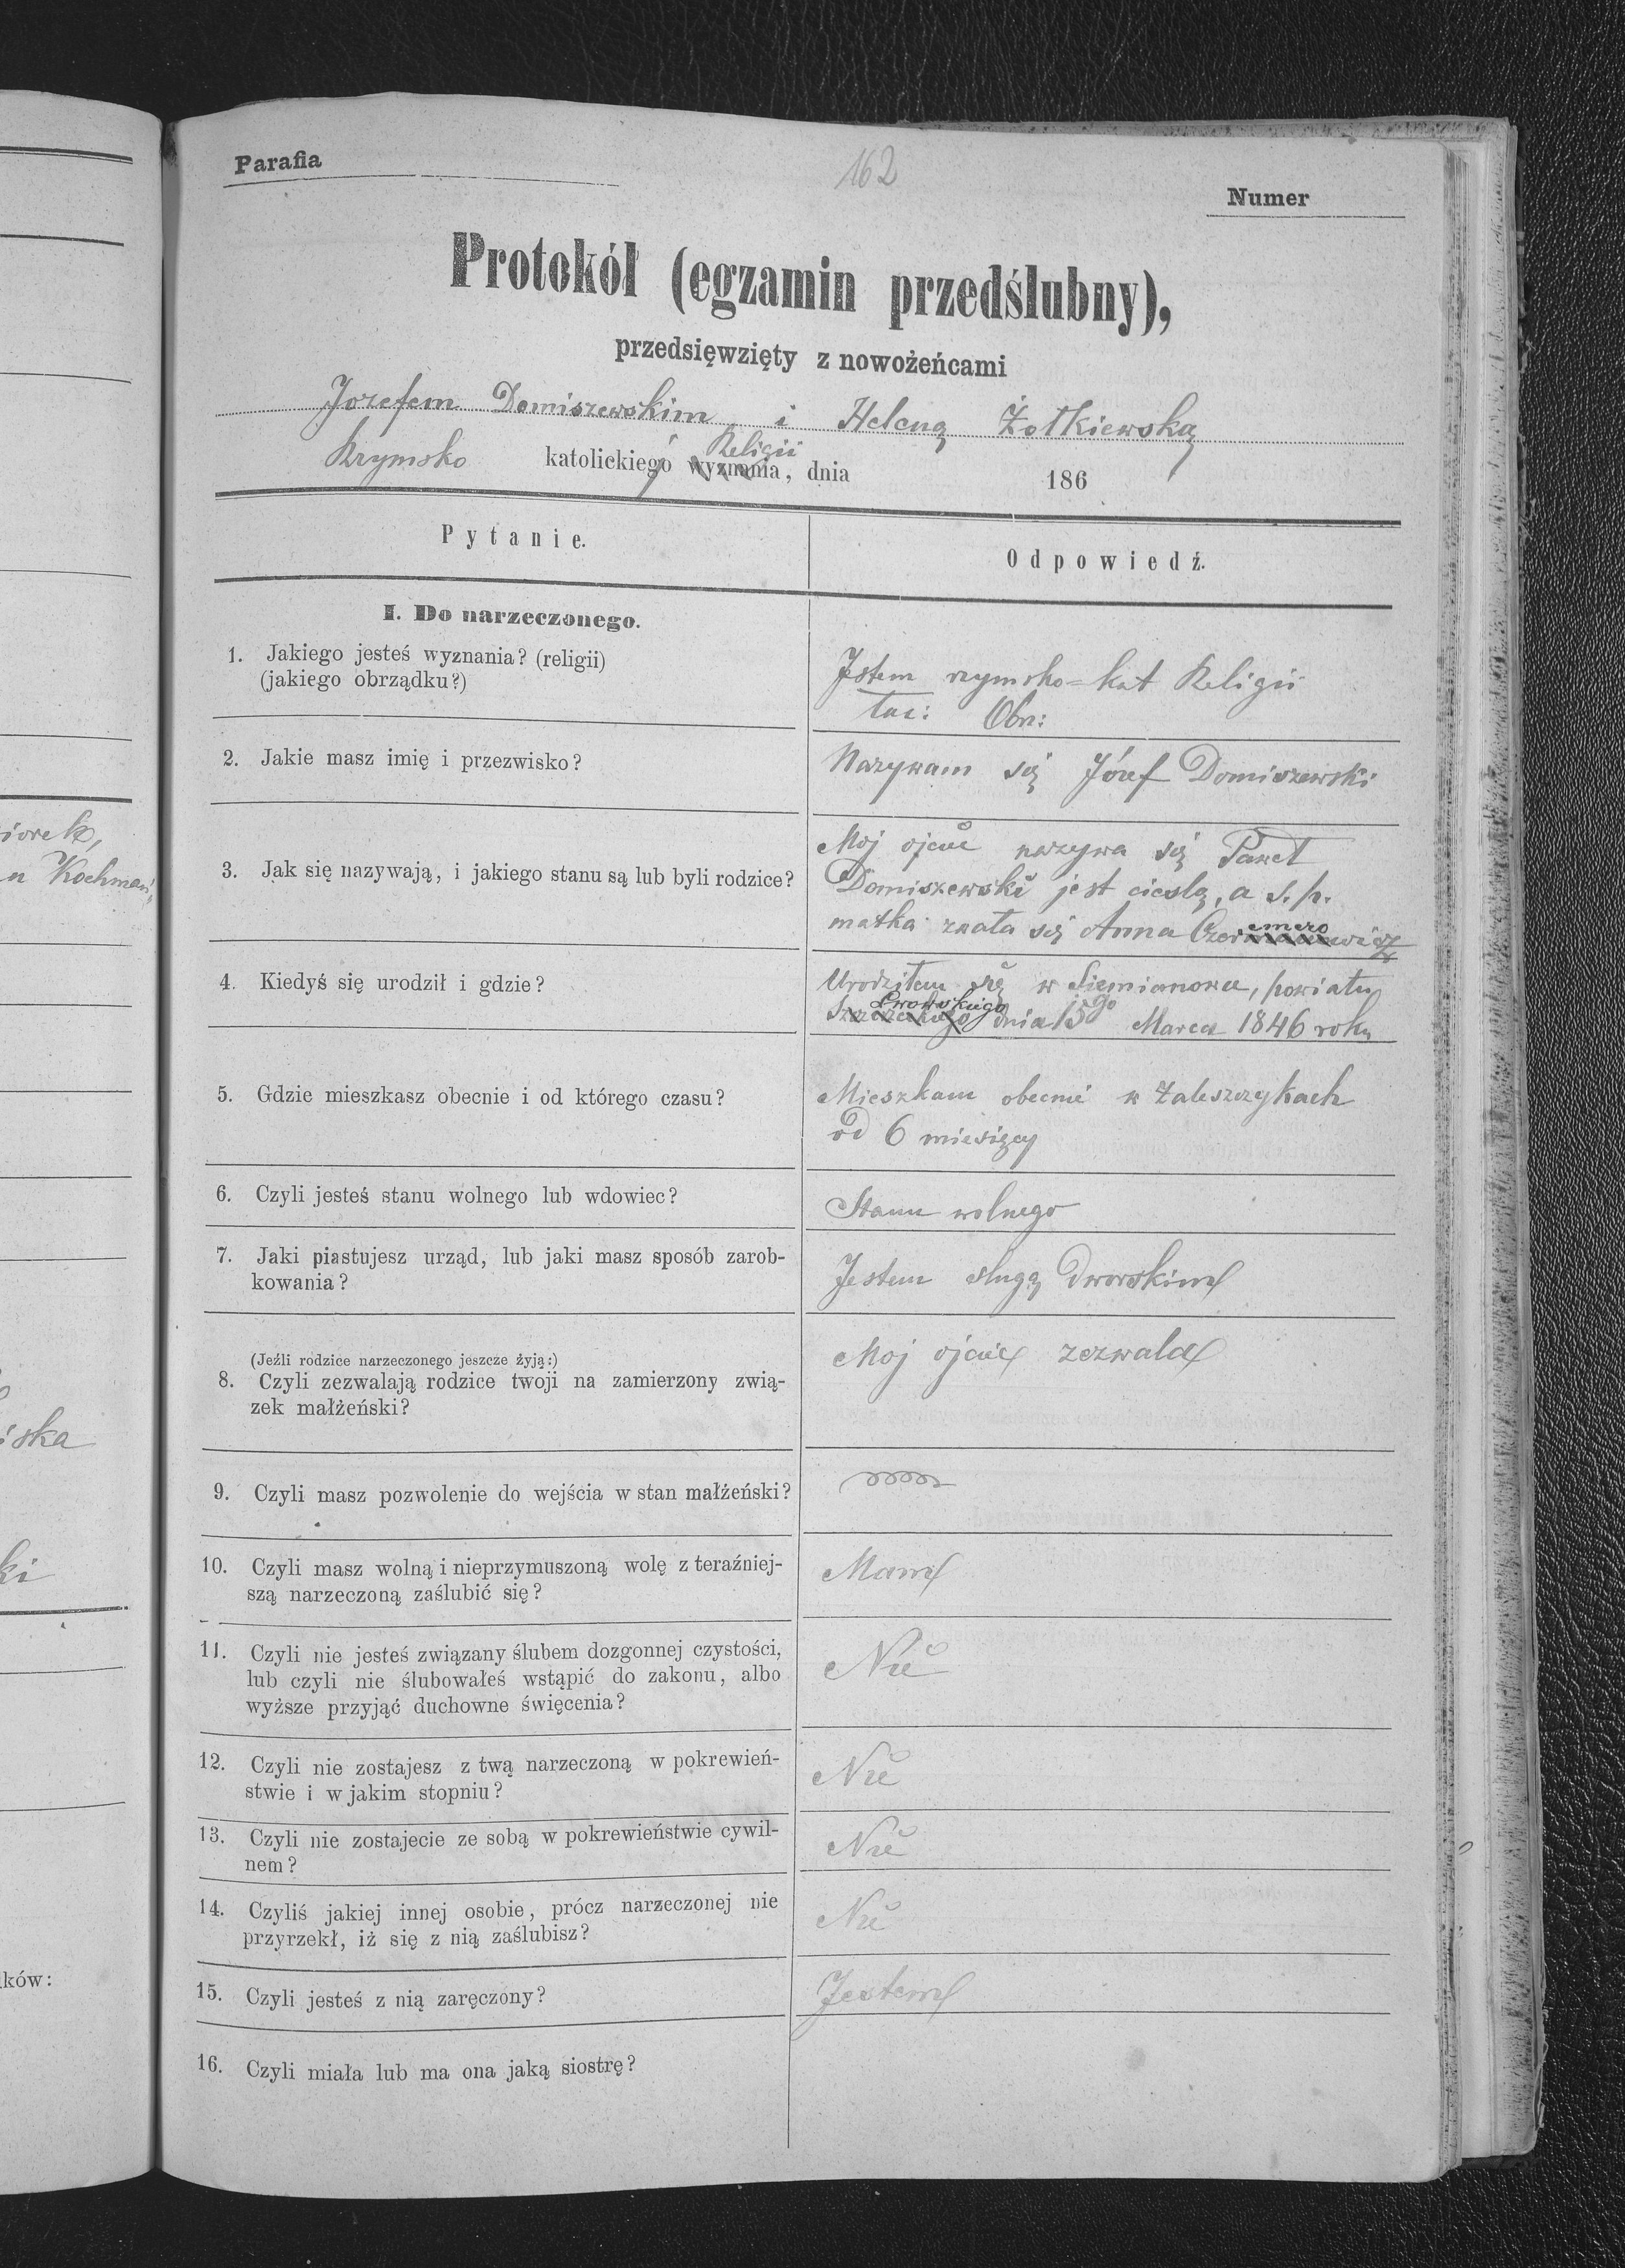 Parafia
162
Numer
Protokół (egzamin przedślubny),
przedsięwzięty z nowożeńcami
Jozefem Domiszewskim i Heleną Żołkiewską
Rzymsko katolickiego wyznania, dnia 186
Religii
Pytanie.
Odpowiedź.
I. Do narzeczonego.
1. Jakiego jesteś wyznania? (religii)
(jakiego obrządku?)
Jstem rzymsko=kat Religii
łac: Obrz:
2. Jakie masz imię i przezwisko?
Nazywam się Józef Domiszewski
3. Jak się nazywają, i jakiego stanu są lub byli rodzice?
Moj ojciec nazywa się Paweł
Domiszewski jest cieslą, a s. p.
matka zwała się Anna
4. Kiedyś się urodził i gdzie?
Urodziłem się w Siemianowce, powiatu
Lwowskiego
dnia 15go Marca 1846 roku
5. Gdzie mieszkasz obecnie i od którego czasu?
Mieszkam obecnie w Zaleszczykach
od 6 miesięcy
6. Czyli jesteś stanu wolnego lub wdowiec?
Stanu wolnego
7. Jaki piastujesz urząd, lub jaki masz sposób zarob-
kowania?
Jestem slugą dworskim
(Jeźli rodzice narzeczonego jeszcze żyją:)
8. Czyli zezwalają rodzice twoji na zamierzony zwią-
zek małżeński?
Moj ojciec zezwala
9. Czyli masz pozwolenie do wejścia w stan małżeński?
10. Czyli masz wolną i nieprzymuszoną wolę z teraźniej-
szą narzeczoną zaślubić się?
Mam
11. Czyli nie jesteś związany ślubem dozgonnej czystości,
lub czyli nie ślubowałeś wstąpić do zakonu, albo
wyższe przyjąć duchowne święcenia?
Nie
12. Czyli nie zostajesz z twą narzeczoną w pokrewień-
stwie i w jakim stopniu?
Nie
13. Czyli nie zostajecie ze sobą w pokrewieństwie cywil-
nem?
Nie
14. Czyliś jakiej innej osobie, prócz narzeczonej nie
przyrzekł, iż się z nią zaślubisz?
Nie
15. Czyli jesteś z nią zaręczony?
Jestem
16. Czyli miała lub ma ona jaką siostrę?
iorek,
n Kochmań
iska
ki
ków: